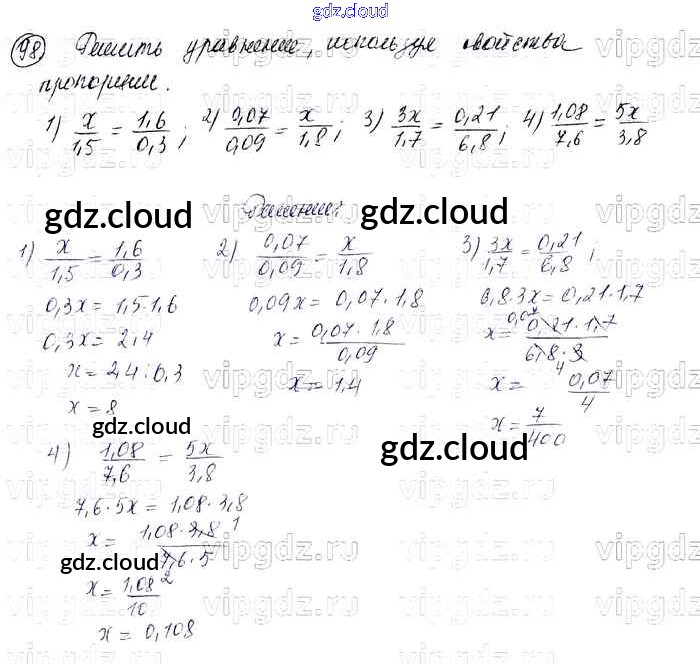 gdz.cloud
98 Решить уравнение, используя свойства
пропорции.
1) x/1,5 = 1,6/0,3; 2) 0,07/0,09 = x/1,8; 3) 3x/1,7 = 0,21/6,8; 4) 1,08/7,6 = 5x/3,8
Решение:
gdz.cloud gdz.cloud
1) x/1,5 = 1,6/0,3
0,3x = 1,5·1,6
0,3x = 2,4
x = 2,4:0,3
x = 8
2) 0,07/0,09 = x/1,8
0,09x = 0,07·1,8
x = 0,07·1,8/0,09
x = 1,4
3) 3x/1,7 = 0,21/6,8;
6,8·3x = 0,21·1,7
x = 0,21·1,7/6,8·3
0,07
4
x = 0,07/4
x = 7/400
gdz.cloud
gdz.cloud
4) 1,08/7,6 = 5x/3,8
7,6·5x = 1,08·3,8
x = 1,08·3,8/7,6·5
1
2
gdz.cloud
x = 1,08/10
x = 0,108
vipgdz.ru